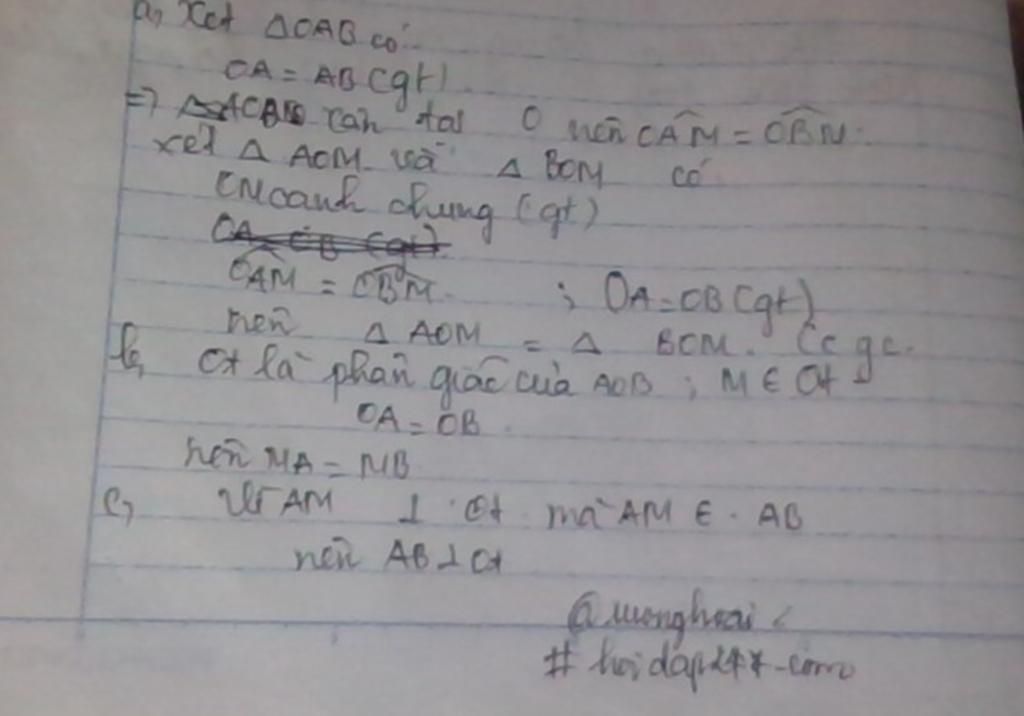 a, Xét ΔOAB có
OA = AB (gt)
=> cân tại O nên OÂM = OB̂M.
xét Δ AOM và Δ BOM có
OM cạnh chung (gt)
OA = OB (gt)
OÂM = OB̂M. ; OA = OB (gt)
nên Δ AOM = Δ BOM. (c g c.
b, Ot là phân giác của AOB ; M ∈ Ot
OA = OB.
nên MA = MB
c, Vì AM ⊥ Ot mà AM ∈ AB
nên AB ⊥ Ot
# hoidap247.com